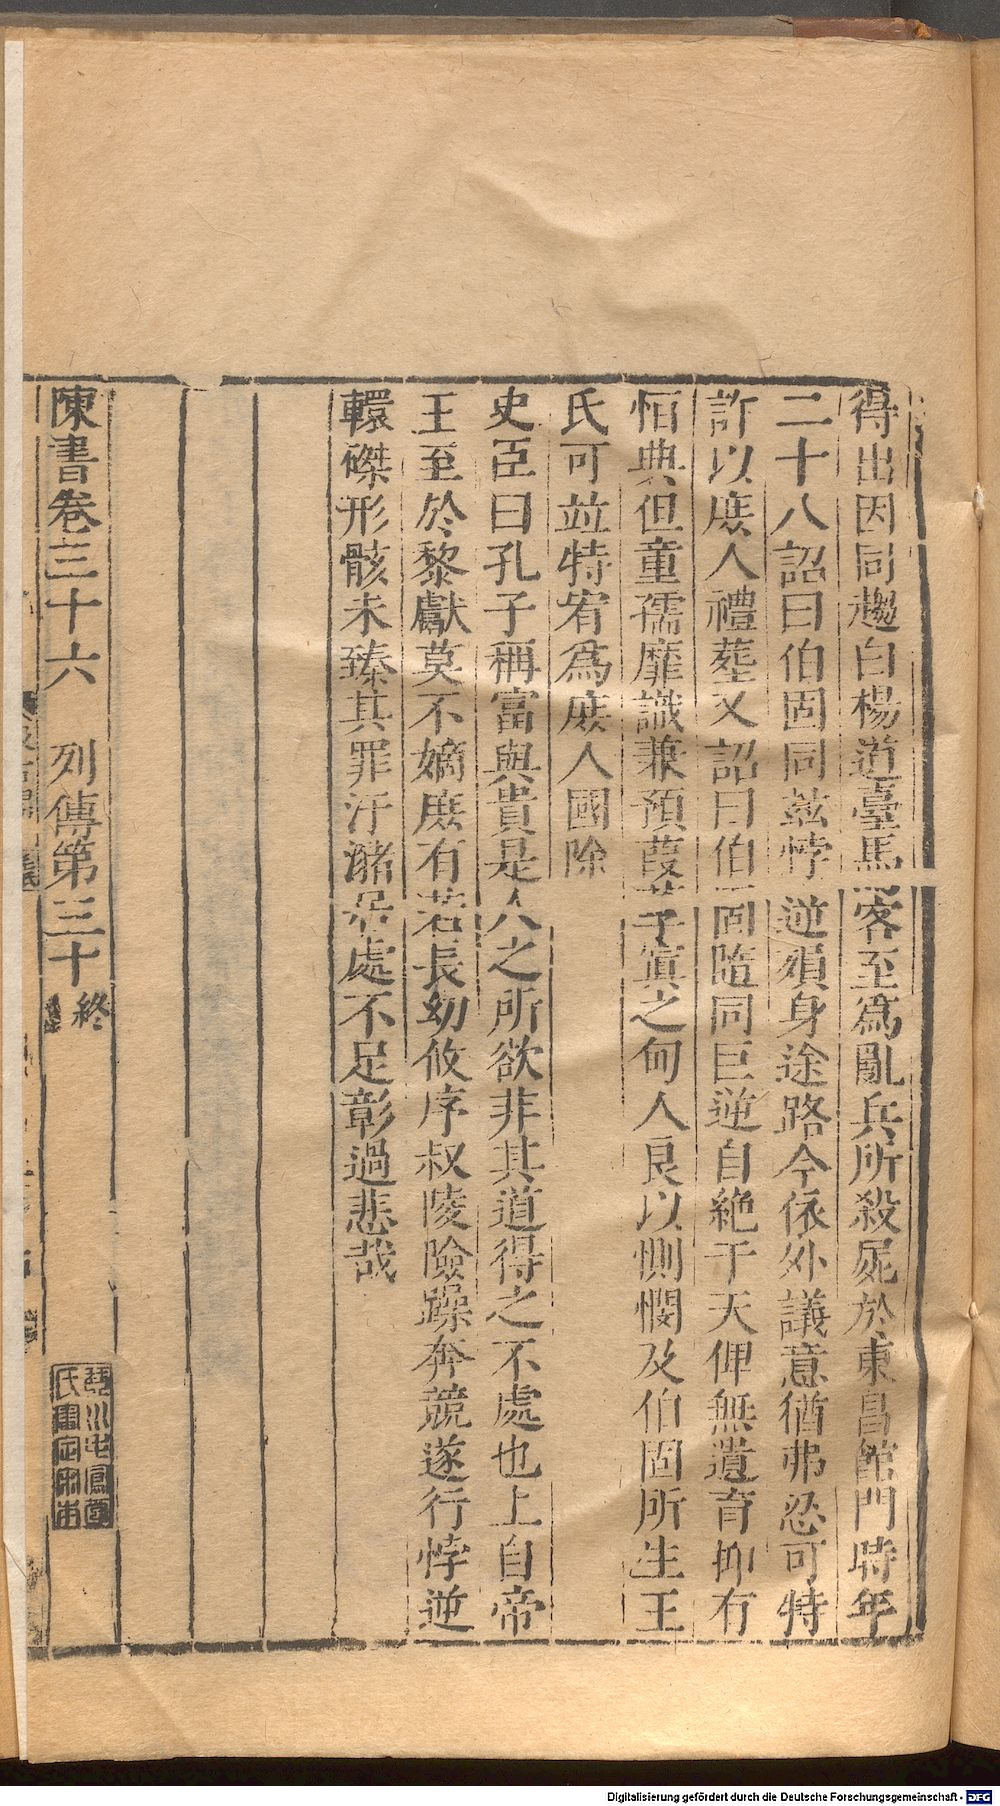 得出因同趨白楊道臺馬客至爲亂兵所殺屍於東昌館門時年
二十八詔曰伯固同茲悖逆殞身途路今依外議意猶弗忍可特
許以庶人禮葬又詔曰伯固隨同巨逆自絶于天俾無遺育抑有
恒典但童孺靡識兼預葭莩寘之甸人良以惻憫及伯固所生王
氏可並特宥爲庶人國除
史臣曰孔子稱富與貴是人之所欲非其道得之不處也上自帝
王至於黎獻莫不嫡庶有若長幼攸序叔陵險躁奔競遂行悖逆
轘磔形骸未臻其罪汙瀦居處不足彰過悲哉
陳書卷三十六 列傳第三十終
琴川毛鳳苞
氏審定宋本
Digitalisierung gefördert durch die Deutsche Forschungsgemeinschaft - DFG